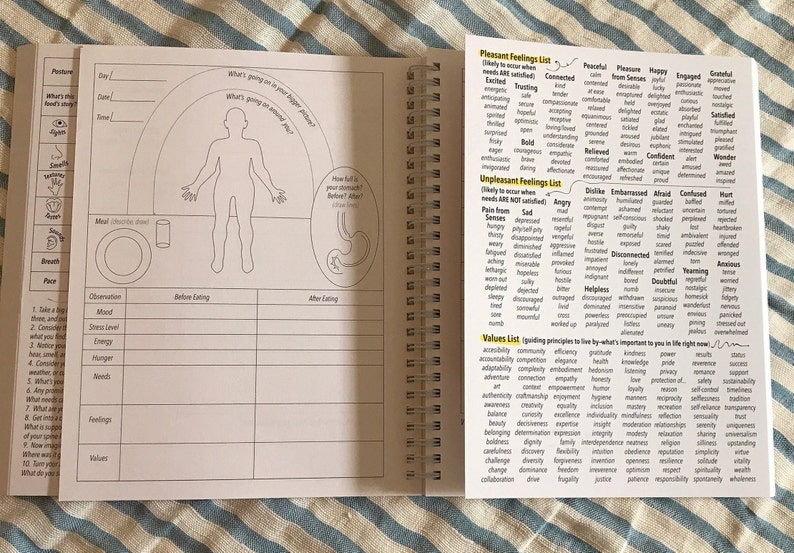 Posture
What's this
food's story?
Sights
Smells
Textures
Tastes
Sounds
Breath
Pace
1. Take a big
three, and ou
2. Consider th
what you find
3. Notice your
hear, smell, a
4. Consider y
weather, or c
5. What's you
6. Any promi
What needs c
7. What are y
8. Get into a c
What is suppo
of your spine
9. Now imagin
Where was it g
10. Turn your
What do you s
Day /
Date /
Time /
What's going on in your bigger picture?
What's going on around you?
How full is
your stomach?
Before? After?
(draw lines)
Meal (describe, draw)
Observation Before Eating After Eating
Mood
Stress Level
Energy
Hunger
Needs
Feelings
Values
Pleasant Feelings List
(likely to occur when
needs ARE satisfied)
Excited
energetic
anticipating
animated
spirited
thrilled
surprised
frisky
eager
enthusiastic
invigorated
Trusting
safe
secure
hopeful
optimistic
open
Bold
courageous
brave
daring
Connected
kind
tender
compassionate
accepting
receptive
loving/loved
understanding
considerate
empathic
devoted
affectionate
Peaceful
calm
contented
at ease
comfortable
relaxed
equanimous
centered
grounded
serene
Relieved
comforted
reassured
encouraged
Pleasure
from Senses
desirable
enraptured
held
delighted
satiated
tickled
elated
aroused
desirous
warm
embodied
affectionate
refreshed
Happy
joyful
lucky
delighted
overjoyed
ecstatic
glad
jubilant
euphoric
Confident
certain
unique
proud
Engaged
passionate
enthusiastic
curious
absorbed
playful
enchanted
intrigued
stimulated
interested
alert
amused
determined
Grateful
appreciative
moved
touched
nostalgic
Satisfied
fulfilled
triumphant
pleased
gratified
Wonder
awed
amazed
inspired
Unpleasant Feelings List
(likely to occur when
needs ARE NOT satisfied)
Pain from
Senses
hungry
thirsty
weary
fatigued
aching
lethargic
worn out
depleted
sleepy
tired
sore
numb
Sad
depressed
pity/self-pity
disappointed
diminished
dissatisfied
miserable
hopeless
sulky
dejected
discouraged
sorrowful
mournful
Angry
mad
resentful
rageful
vengeful
aggressive
inflamed
provoked
furious
hostile
bitter
outraged
livid
cross
worked up
Dislike
animosity
contempt
repugnant
disgust
averse
hostile
frustrated
impatient
annoyed
indignant
Helpless
discouraged
dominated
invasive
powerless
paralyzed
Embarrassed
humiliated
ashamed
self-conscious
guilty
remorseful
envious
exposed
Disconnected
lonely
indifferent
bored
numb
withdrawn
insensitive
preoccupied
distrustful
listless
alienated
Afraid
guarded
reluctant
shocked
shaky
timid
scared
horrified
terrified
alarmed
torn
Doubtful
insecure
suspicious
paranoid
unsure
envious
jealous
Confused
baffled
uncertain
perplexed
lost
ambivalent
puzzled
indecisive
terrified
panic
Yearning
regretful
nostalgic
homesick
wanderlust
envious
pining
jealous
Hurt
miffed
tortured
rejected
heartbroken
injured
offended
wronged
Anxious
tense
worried
jittery
fidgety
nervous
panicked
stressed out
overwhelmed
Values List (guiding principles to live by-what's important to you in life right now)
accesibility community efficiency gratitude kindness power results status
accountability competition elegance health knowledge pride reverence success
adaptability complexity embodiment hedonism listening privacy romance support
adventure connection empathy honesty love protection of... safety sustainability
art context empowerment humor loyalty reason self-control timeliness
authenticity craftmanship enjoyment hygiene manners reciprocity selflessness tradition
awareness creativity equality inclusion mastery recreation self-reliance transparency
balance curiosity excellence individuality mindfulness reflection sensuality trust
beauty decisiveness expertise insight moderation relationships serenity uniqueness
belonging determination expression integrity modesty relaxation sharing universalism
boldness dignity family interdependence neatness religion silliness upstanding
carefulness discovery flexibility intuition obedience reputation simplicity virtue
challenge diversity forgiveness invention openness resilience solitude vitality
change dominance freedom irreverence optimism respect spirituality wealth
collaboration drive frugality justice patience responsibility spontaneity wholeness